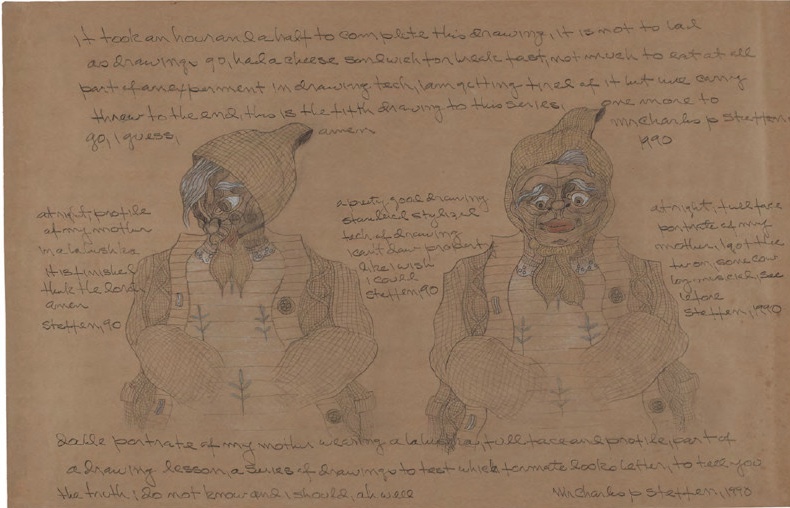 it took an hour and a half to complete this drawing, it is not to bad
as drawings go, had a cheese sandwich for break fast, not much to eat at all
part of an experment in drawing tech, i am getting tired of it but we carry
threw to the end, this is the fifth drawing to this series, one more to
go, i guess, amen
Mr Charles p Steffen,
1990
at right, profile
of my mother
in a
it is finished
thank the lord,
amen
Steffen, 90
a pretty good drawing
standard stylized
tech of drawing
i can't draw propert
like i wish
i could
Steffen, 90
at right, full face
portrate of my
mother, i got the
Steffen, 1990
portrate of my mother wearing a full face and profile, part of
a drawing lesson, a series of drawings to test which formate looks better, to tell you
the truth, i do not know and i should, ah well
Mr Charles p Steffen, 1990